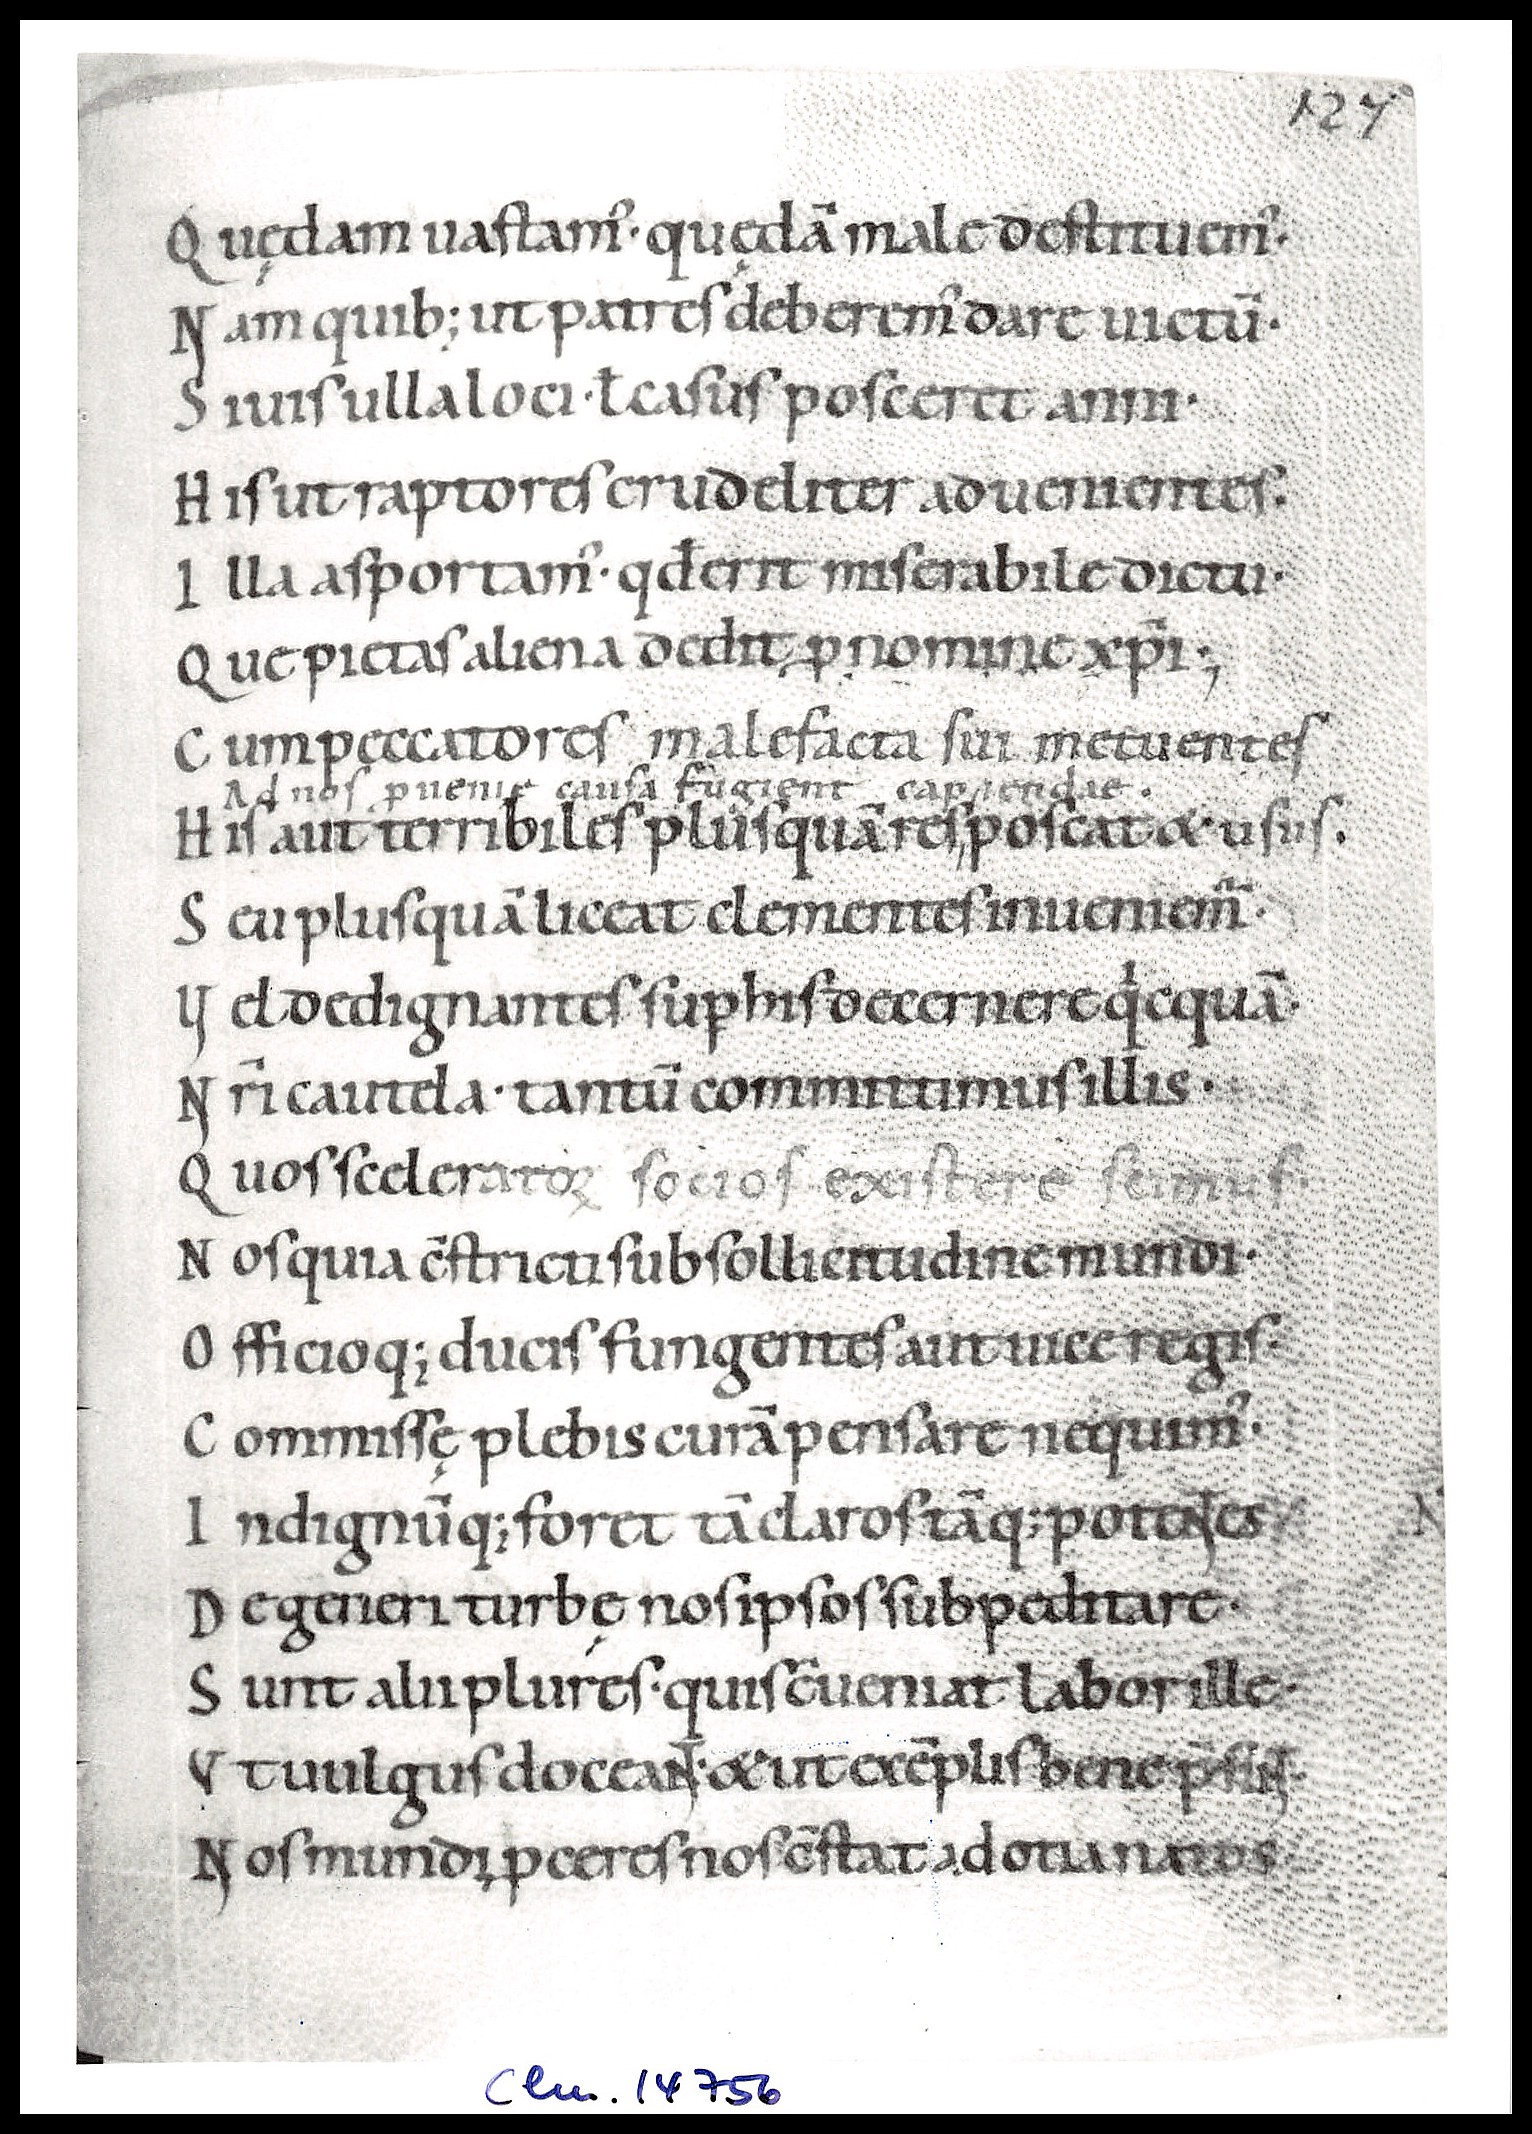 127
Quędam uastam᾽· quędā male destituem᾽·
Nam quib; ut patres deberem᾽ dare uictū·
Si uis ulla loci · ł casus posceret anni·
His ut raptores crudeliter aduenientes·
Illa asportam᾽· qđ erit miserabile dictu·
Que pietas aliena dedit, ꝓ nomine xp̄i·,
Cum peccatores malefacta sui metuentes
Ad nos ꝑuenie causa fugient capiendae.
His aut terribiles plusquā res poscat & usus.
Seu plusquā liceat clementes inueniem᾽·
Vel dedignantes suꝑ his decernere qͥcquā·
Nr̄i cautela · tantū committimus illis·
Quos sceleratoꝝ socios existere scimus·
Nos quia c̄stricti sub sollicitudine mundi·
Officioq; ducis fungentes aut uice regis·
Commissę plebis curā pensare nequim᾽·
Indignūq; foret tā claros tāq; potentes
Degeneri turbę nos ipsos subpeditare·
Sunt alii plures· quis c̄ueniat labor ille·
Vt uulgus doceant· & ut exēplis bene p̄sint·
Nos mundi ꝓceres nos c̄stat ad otia natos
Clm. 14756